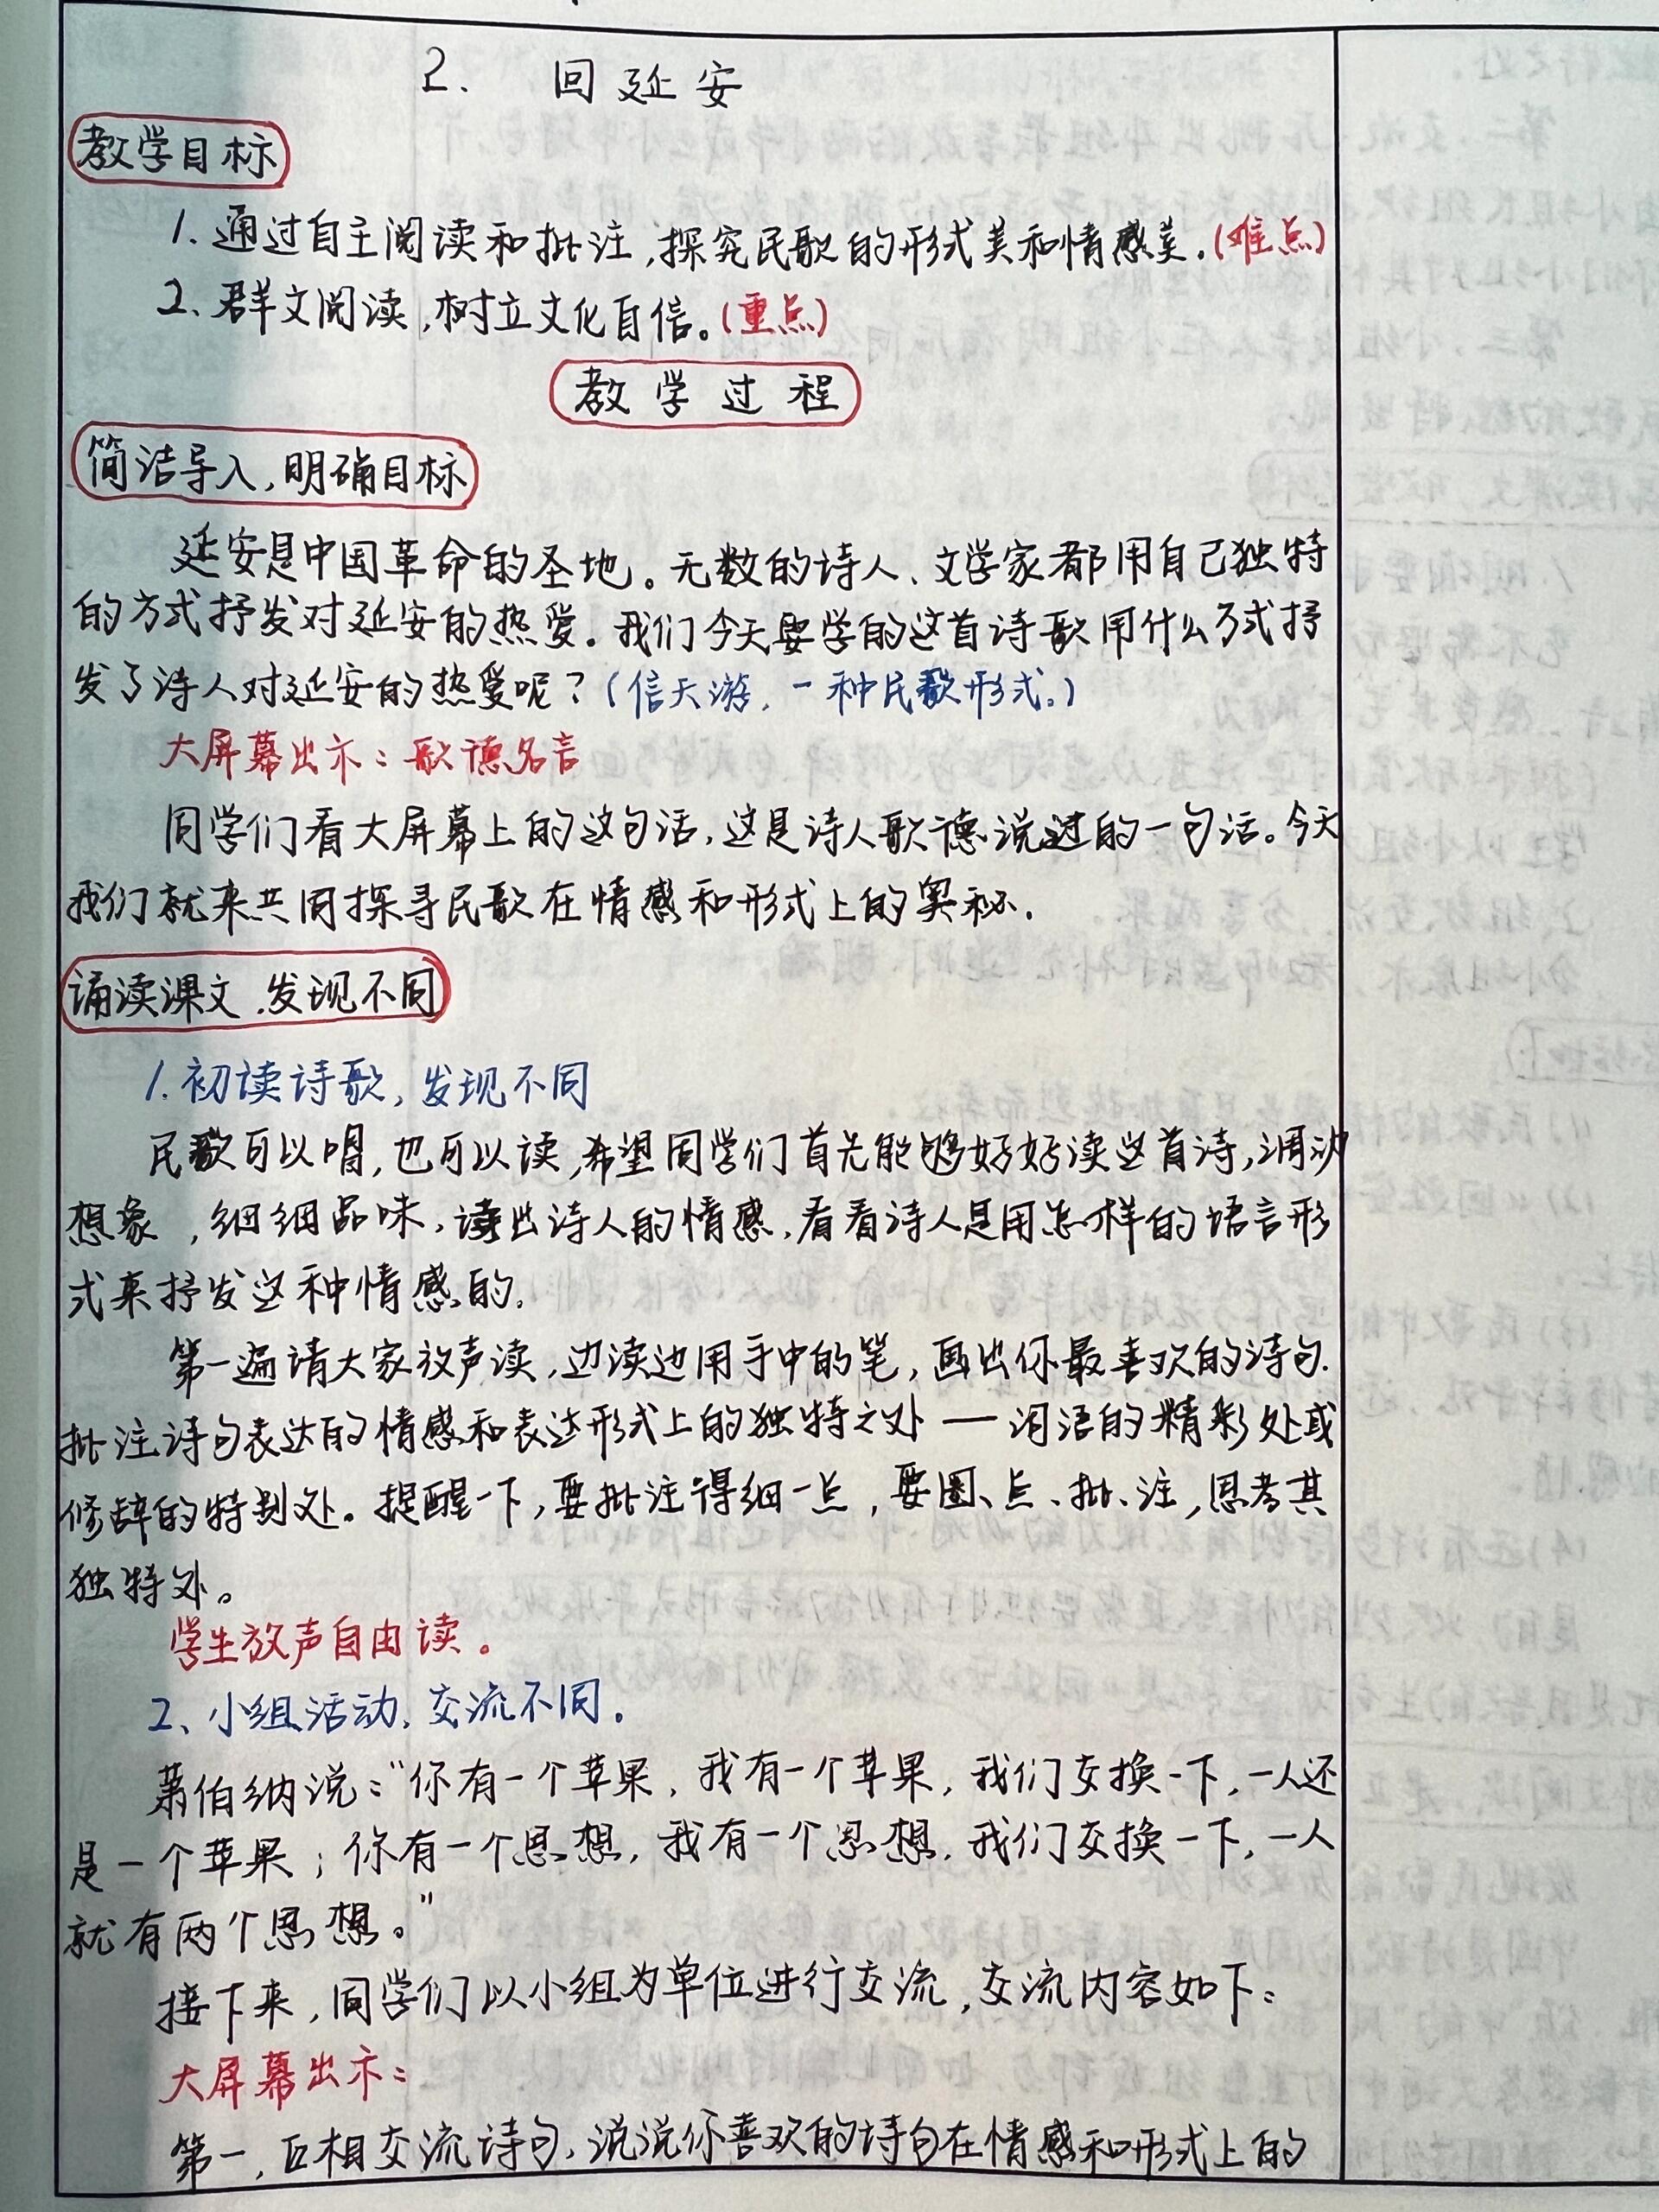 2. 回延安
教学目标
1. 通过自主阅读和批注,探究民歌的形式美和情感美.(难点)
2、群文阅读,树立文化自信。(重点)
教学过程
简洁导入,明确目标
延安是中国革命的圣地。无数的诗人、文学家都用自己独特
的方式抒发对延安的热爱。我们今天要学的这首诗歌用什么方式抒
发了诗人对延安的热爱呢?(信天游,一种民歌形式。)
大屏幕出示:歌德名言
同学们看大屏幕上的这句话,这是诗人歌德说过的一句话。今天
我们就来共同探寻民歌在情感和形式上的奥秘.
诵读课文,发现不同
1.初读诗歌,发现不同
民歌可以唱,也可以读,希望同学们首先能够好好读这首诗,调动
想象,细细品味,读出诗人的情感,看看诗人是用怎样的语言形
式来抒发这种情感的.
第一遍请大家放声读,边读边用手中的笔,画出你最喜欢的诗句.
批注诗句表达的情感和表达形式上的独特之处—词语的精彩处或
修辞的特别处。提醒一下,要批注得细一点,要圈、点、批、注,思考其
独特处。
学生放声自由读。
2、小组活动,交流不同。
萧伯纳说:“你有一个苹果,我有一个苹果,我们交换一下,一人还
是一个苹果;你有一个思想,我有一个思想,我们交换一下,一人
就有两个思想。”
接下来,同学们以小组为单位进行交流,交流内容如下:
大屏幕出示:
第一,互相交流诗句,说说你喜欢的诗句在情感和形式上的